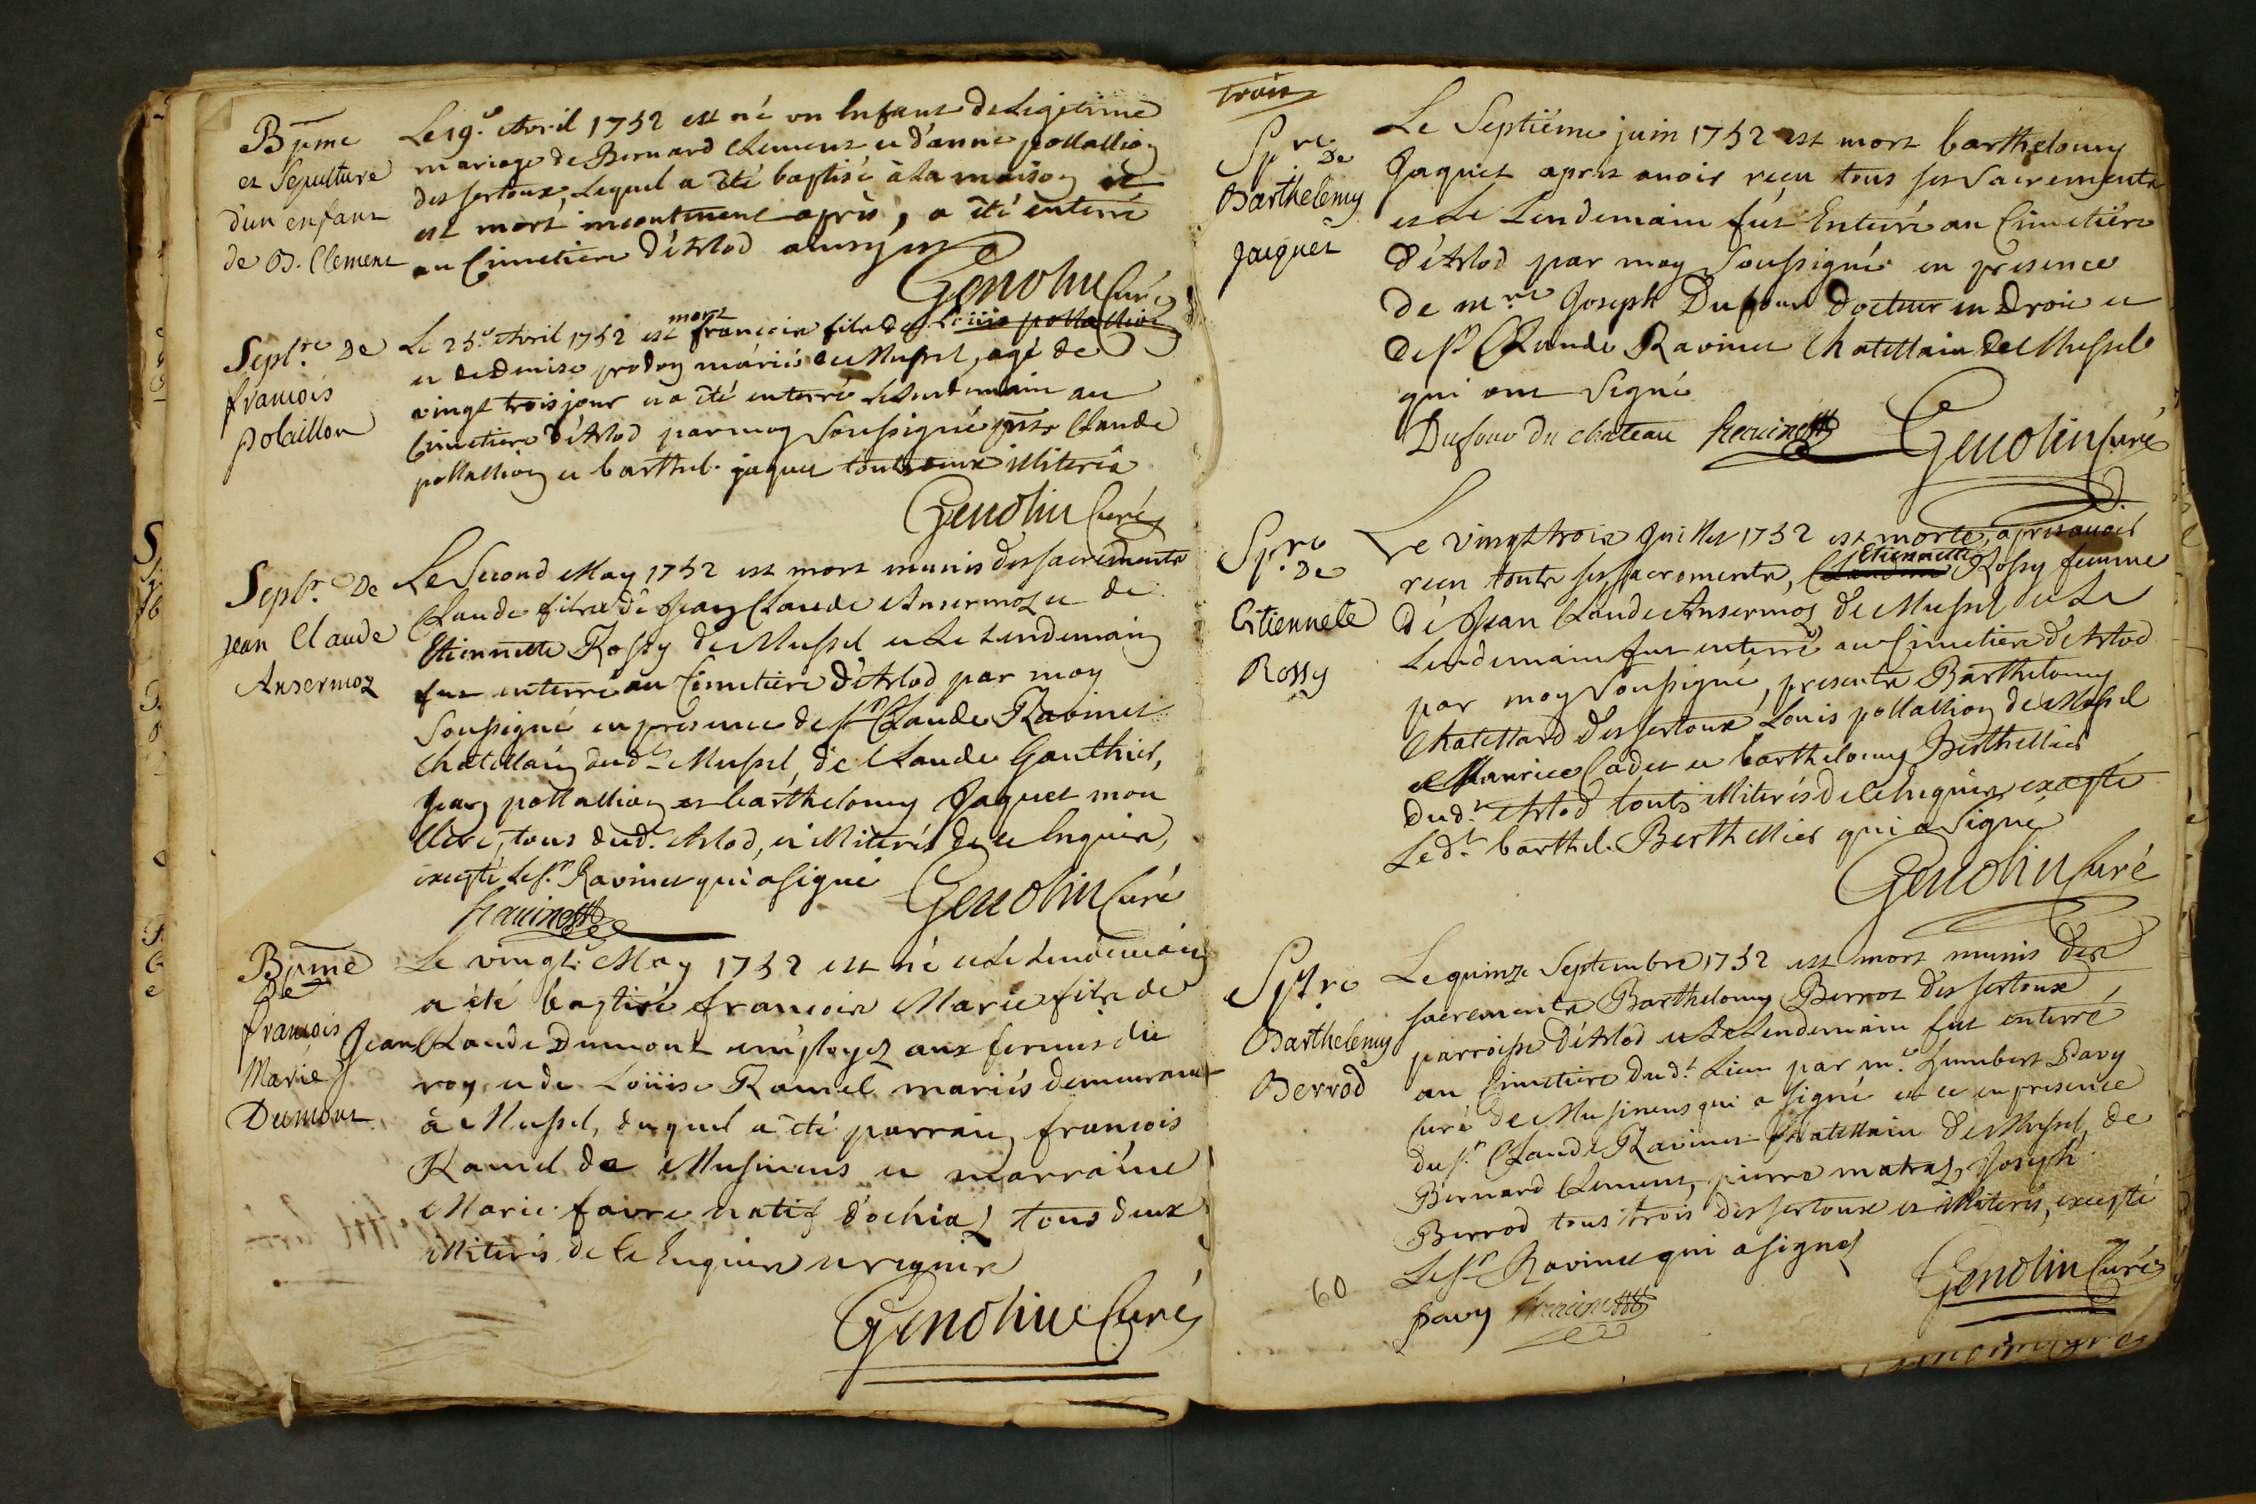 Bpme
et Sepulture
d'un enfant
de B. Clement
Le 19.e Avril 1752 est né un Enfant de Legitime
mariage de Bernard Clement et d'anne pollallion
des sertoux, Lequel a été baptisé à la maison et
est mort incontinent après, a été enterré
au Cimetiere d'Arlod
Genolin Curé
Sept.re De
françois
polaillon
mort
Le 25.e Avril 1752 est françois fils de Loüis pollallion
et de Denise prodon mariés de Mussel, agé de
vingt trois jour et a été enterré Le Lendemain au
Cimetiere d'Arlod par moy Soussigné pnts Claude
pollallion et barthel. jaquet touts deux illiterés
Genolin Curé
Sept.re De
jean Claude
Ansermoz
Le Second May 1752 est mort munis des sacrements
Claude fils de Jean Claude Ansermoz et de
Etiennette Rossy de Mussel et Le Lendemain
fut enterré au Cimetiere d'Arlod par moy
Soussigné en presence de sr Claude Ravinet
Chatellain dud.t Mussel, de Claude Gauthier,
Jean pollallion et barthelemy Jaquet mon
Clerc, tous dud. Arlod, illiterés de ce Enquis,
excepté Le sr. Ravinet qui a signé
Genolin Curé
Bpme
De
françois
Marie
Dumont
Le vingt May 1752 est né et Le Lendemain
a été baptisé françois Marie fils de
Jean Claude Dumont employez aux fermes du
roy et de Loüise Ramel mariés demeurant
à Mussel, duquel a été parrain françois
Ramel de Musinens et marraine
Marie faivre natif d'ochiaz tous deux
illiterés de ce Enquis et requis
Genolin Curé
trois
Sp.re
De
Barthelemy
jaquet
Le Septiéme juin 1752 est mort barthelemy
Jaquet apres avoir reçu tous ses Sacrements
et Le Lendemain fut Enterré au Cimetiére
d'Arlod par moy Soussigné en presence
de m.re Joseph Dufour docteur en Droit et
de sr Claude Ravinet Chatellain de Mussel
qui ont Signé
Dufour du chateau
Genolin Curé
Sp.re
De
Etiennete
Rossy
Le vingt trois Juillet 1752 est morte, apres avoir
Etiennette
reçu touts ses sacrements, Rossy femme
de Jean Claude Ansermoz de Mussel et Le
Lendemain fut enterré au Cimetiere d'Arlod
par moy Soussigné, presents Barthelemy
Chatellard des sertoux Louis pollallion de Mussel
Maurice Cadet et barthelemy Berthellier
dud.t Arlod touts illiterés de ce Enquis excepté
Led.t barthel. Berthellier qui a signé
Genolin Curé
Spt.re
Barthelemy
Berrod
Le quinze Septembre 1752 est mort munis des
sacrements Barthelemy Berrot des sertoux
parroisse d'Arlod et Le Lendemain fut enterré
au Cimetiere dud.t Lieu par m.e humbert Davy
Curé de Musinens qui a signé et ce en presence
du sr. Claude Ravinet Chatellain de Mussel, de
Bernard Clement, pierre matraz, Joseph
Berrod tous trois des sertoux et illiterés, excepté
Le sr Ravinet qui a signé
60
Davy
Genolin Curé